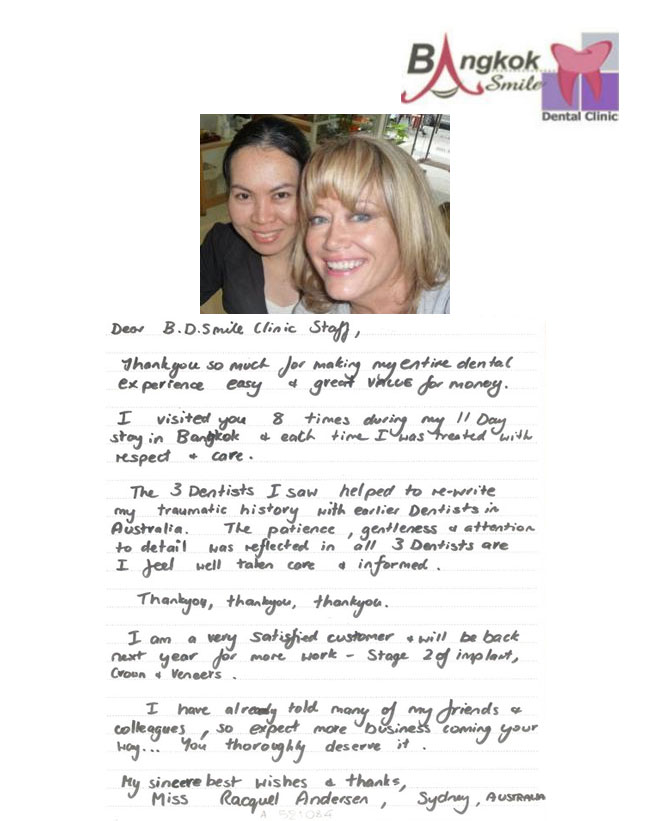 BAngkok
Smile
Dental Clinic
Dear B.D.Smile Clinic Staff,
Thankyou so much for making my entire dental
experience easy & great value for money.
I visited you 8 times during my 11 Day
stay in Bangkok & each time I was treated with
respect & care.
The 3 Dentists I saw helped to re-write
my traumatic history with earlier Dentists in
Australia. The patience, gentleness & attention
to detail was reflected in all 3 Dentists are
I feel well taken care & informed.
Thankyou, thankyou, thankyou.
I am a very satisfied customer & will be back
next year for more work - Stage 2 of implant,
Crown & Veneers.
I have already told many of my friends &
colleagues, so expect more business coming your
way... You thoroughly deserve it.
My sincere best wishes & thanks,
Miss Racquel Andersen, Sydney, AUSTRALIA